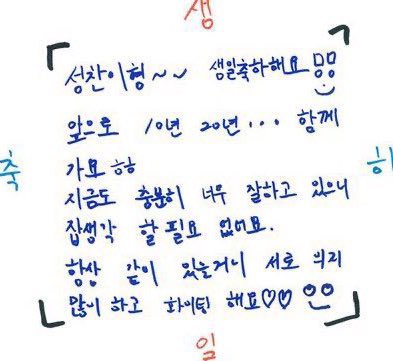 생
성찬이형~~ 생일축하해요
앞으로 10년 20년... 함께
가요 ㅎㅎ
지금도 충분히 너무 잘하고 있으니
잡생각 할 필요 없어요.
항상 같이 있을거니 서로 의리
많이 하고 화이팅 해요♡♡
축
하
일